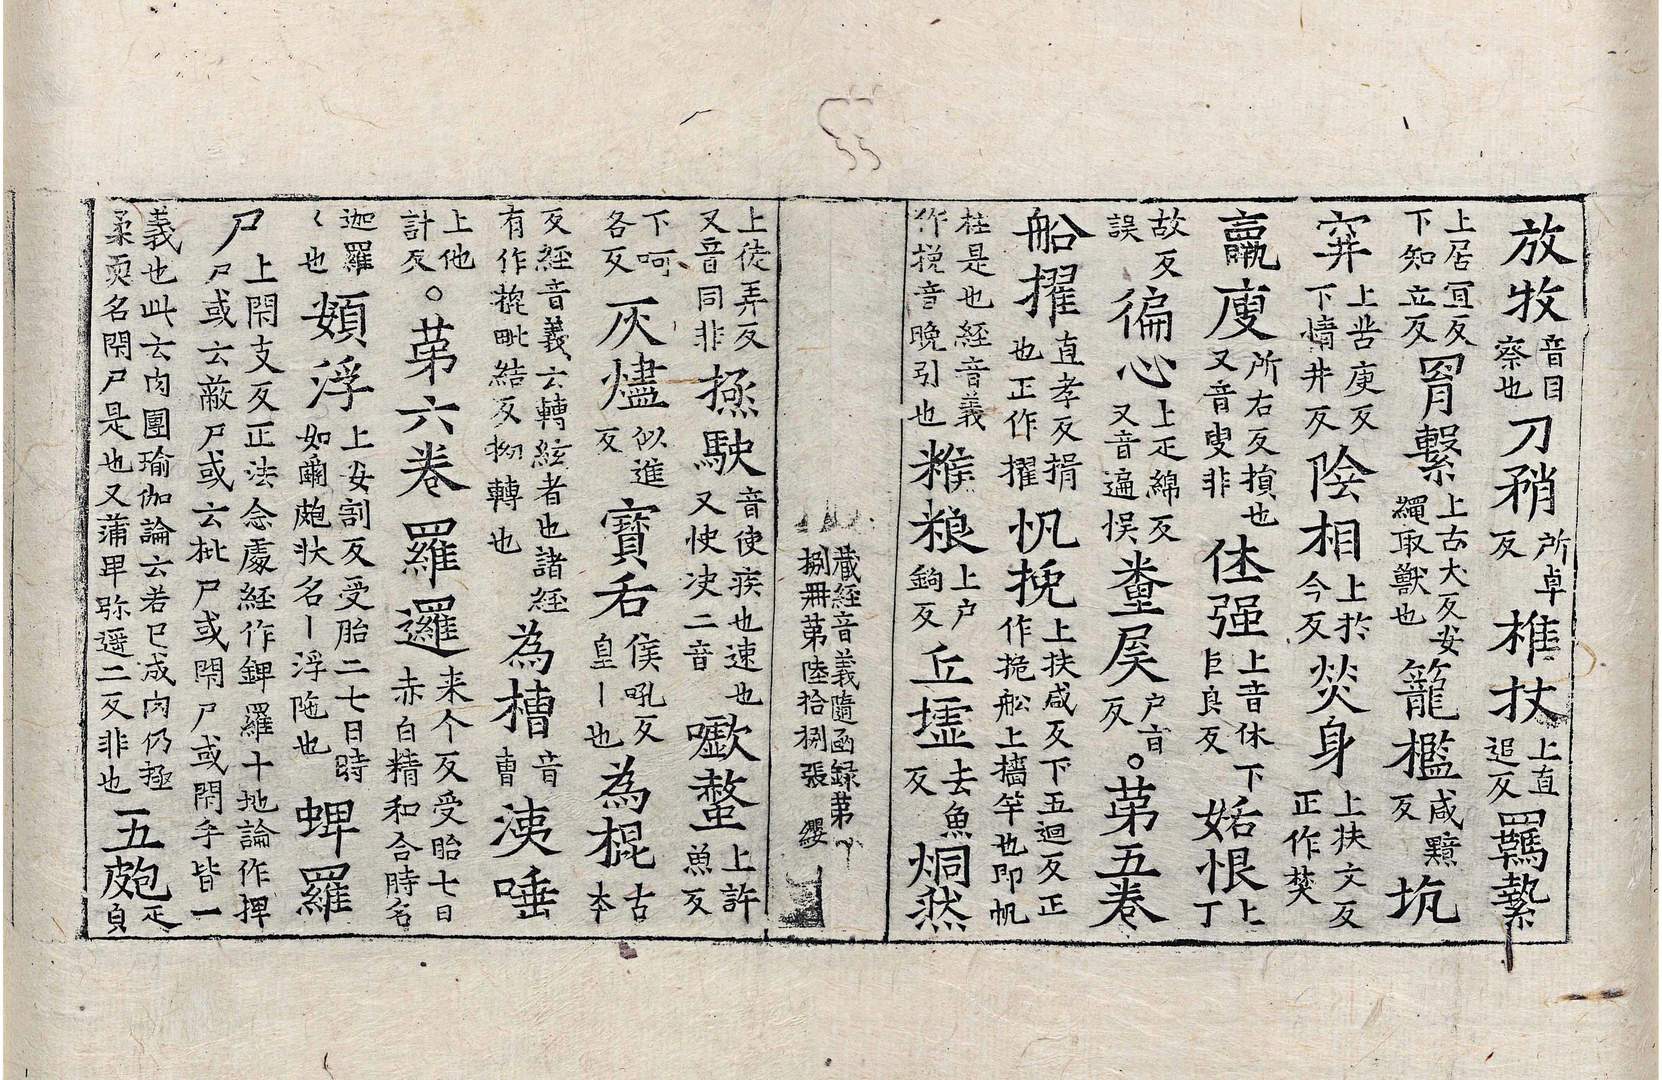 放牧音目察也刀矟所卓反椎杖上直追反羈縶
上居冝反下知立反罥繫上古犬反安繩取獸也籠檻咸黤反坑
穽上苦庚反下情井反陰相上於今反燹身上扶文反正作焚
羸廋所右反損也又音叟非㑃强上音休下巨良反姤恨上丁
故反誤徧心上疋綿反又音遍悮糞屎户音反。第五卷
船擢直孝反捐也正作擢㠶挽上扶咸反下五迴反正作挽舩上檣竿也即帆
柱是也経音義作挽音晚引也糇粮上户鉤反丘墟去魚反烔然
藏経音義隨函録第
捌冊第陸拾捌張 纓
上徒弄反又音同非拯駛音使疾也速也又快决二音㘎螫上許魚反
下呵各反灰燼似進反寶缶侯吼反皇丨也為棍古本
反経音義云轉絃者也諸経有作捩毗結反拗轉也為槽音曹洟唾
上他計反。第六卷羅邏来个反受胎七日赤白精和合時名
迦羅〻也頞浮上安割反受胎二七日時如爾皰状名丨浮陁也蜱羅
上閇支反正法念處経作錍羅十地論作捭
尸尸或云蔽尸或云枇尸或閇尸或閇手皆一
義也此云肉團瑜伽論云若已成肉仍極柔耎名閇尸是也又蒲甲弥遥二反非也五皰疋皃